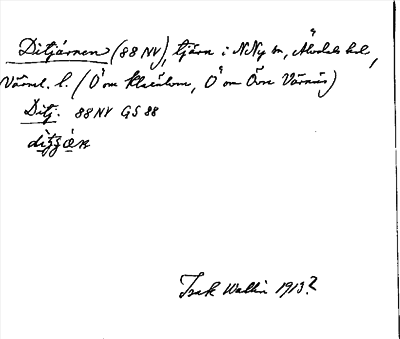 Ditjärnen (88 NV), tjärn i N Ny sn, Älvdals hd,
Värml. l. (O om Klarälven, O om Övre Värnäs)
Ditj. 88 NV GS 88
Isak Wallin 1913?